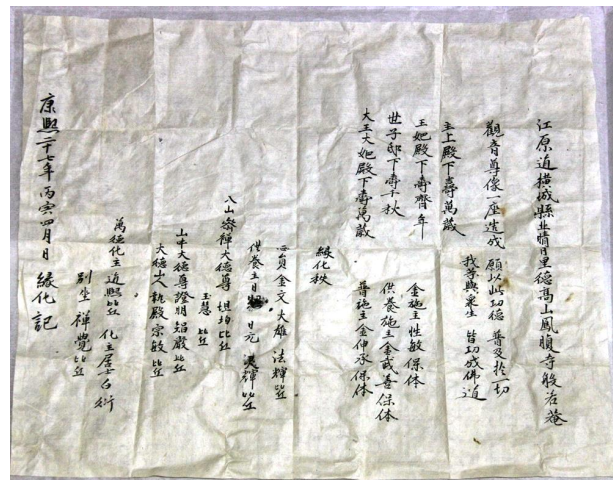 江原道橫城縣北晴日里德高山鳳腹寺般若菴
觀音尊像一座造成 願以此功德 普及於一切
我等與衆生 皆功成佛道
主上殿下壽萬歲
王妃殿下壽齊年
世子邸下壽千秋
大王大妃殿下壽萬歲
金施主性敏保体
供養施主金戒善保体
普施主金仲承保体
緣化秩
畫員金文 大雄 法輝 比丘
供養主 日元 輝比丘
八山禪大德尊 坦均比丘
玉慧 比丘
山中大德尊證明 智嚴比丘
大德山人執殿宗敏比丘
萬德化主 道熙比丘 化主居士白衍
別坐 禪覺比丘
康熙二十七年丙寅四月日 緣化記